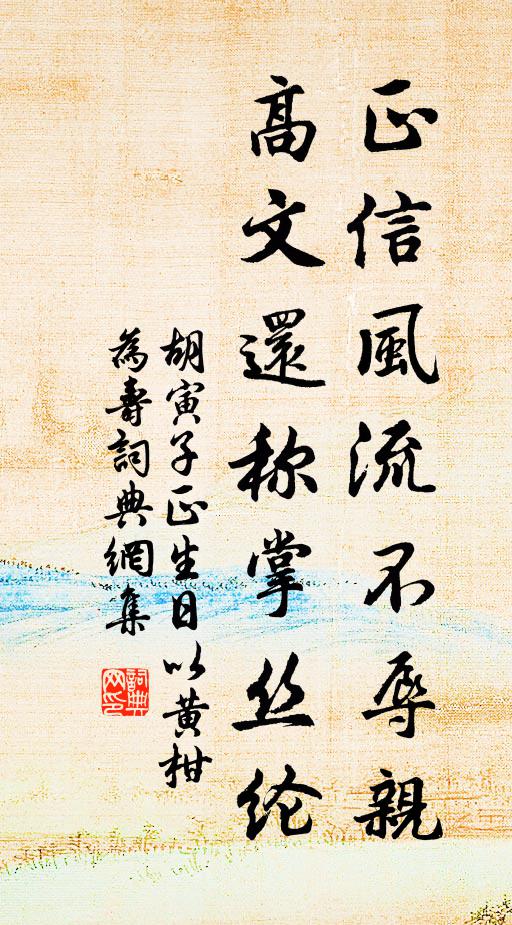 正信風流不辱親
高文還称掌丝纶
胡寅子正生日以黄柑
為壽詞典網集
詞典网印